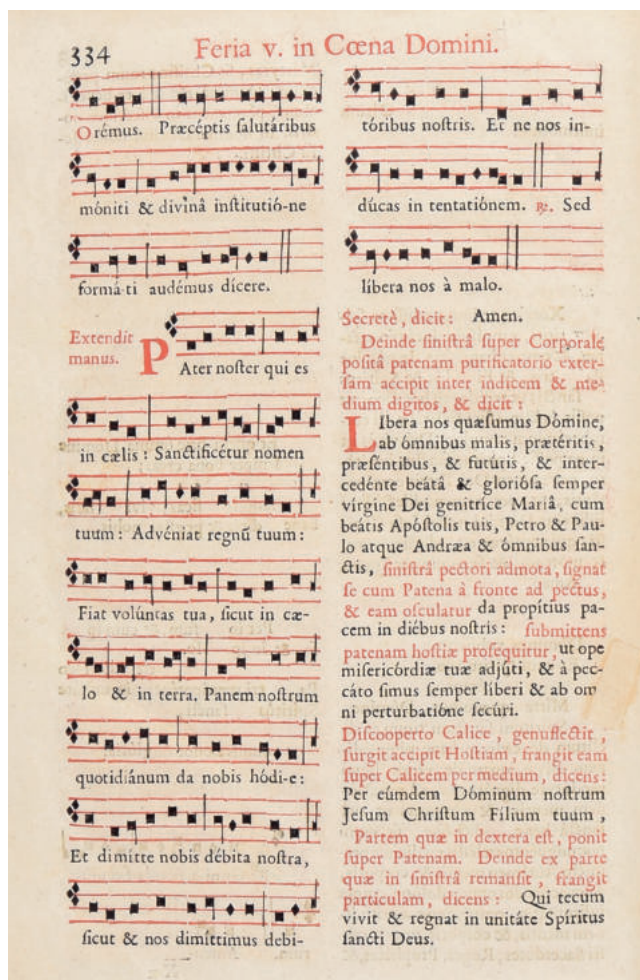 334
Feria v. in Cœna Domini.
Orémus. Præcéptis salutáribus
móniti & divínâ institutió-ne
formá-ti audémus dícere.
Extendit
manus.
Pater noster qui es
in cælis : Sanctificétur nomen
tuum : Advéniat regnũ tuum :
Fiat volúntas tua, sicut in cæ-
lo & in terra. Panem nostrum
quotidiánum da nobis hódi-e :
Et dimitte nobis débita nostra,
sicut & nos dimíttimus debi-
tóribus nostris. Et ne nos in-
dúcas in tentatiónem. ℟. Sed
líbera nos à malo.
Secretè, dicit : Amen.
Deinde sinistrâ super Corporale
positâ patenam purificatorio exter-
sam accipit inter indicem & me-
dium digitos, & dicit :
Libera nos quæsumus Dómine,
ab ómnibus malis, prætéritis,
præséntibus, & futúris, & inter-
cedénte beátâ & gloriósa semper
vírgine Dei genitríce Mariâ, cum
beátis Apóstolis tuis, Petro & Pau-
lo atque Andræa & ómnibus san-
ctis, sinistrâ pectori admota, signat
se cum Patena à fronte ad pectus,
& eam osculatur da propítius pa-
cem in diébus nostris : submittens
patenam hostiæ prosequitur, ut ope
misericórdiæ tuæ adjúti, & à pec-
cáto simus semper líberi & ab om
ni perturbatióne secúri.
Discooperto Calice, genuflectit,
surgit accipit Hostiam, frangit eam
super Calicem per medium, dicens :
Per eúmdem Dóminum nostrum
Jesum Christum Fílium tuum,
Partem quæ in dextera est, ponit
super Patenam. Deinde ex parte
quæ in sinistrâ remansit, frangit
particulam, dicens : Qui tecum
vivit & regnat in unitáte Spíritus
sancti Deus.